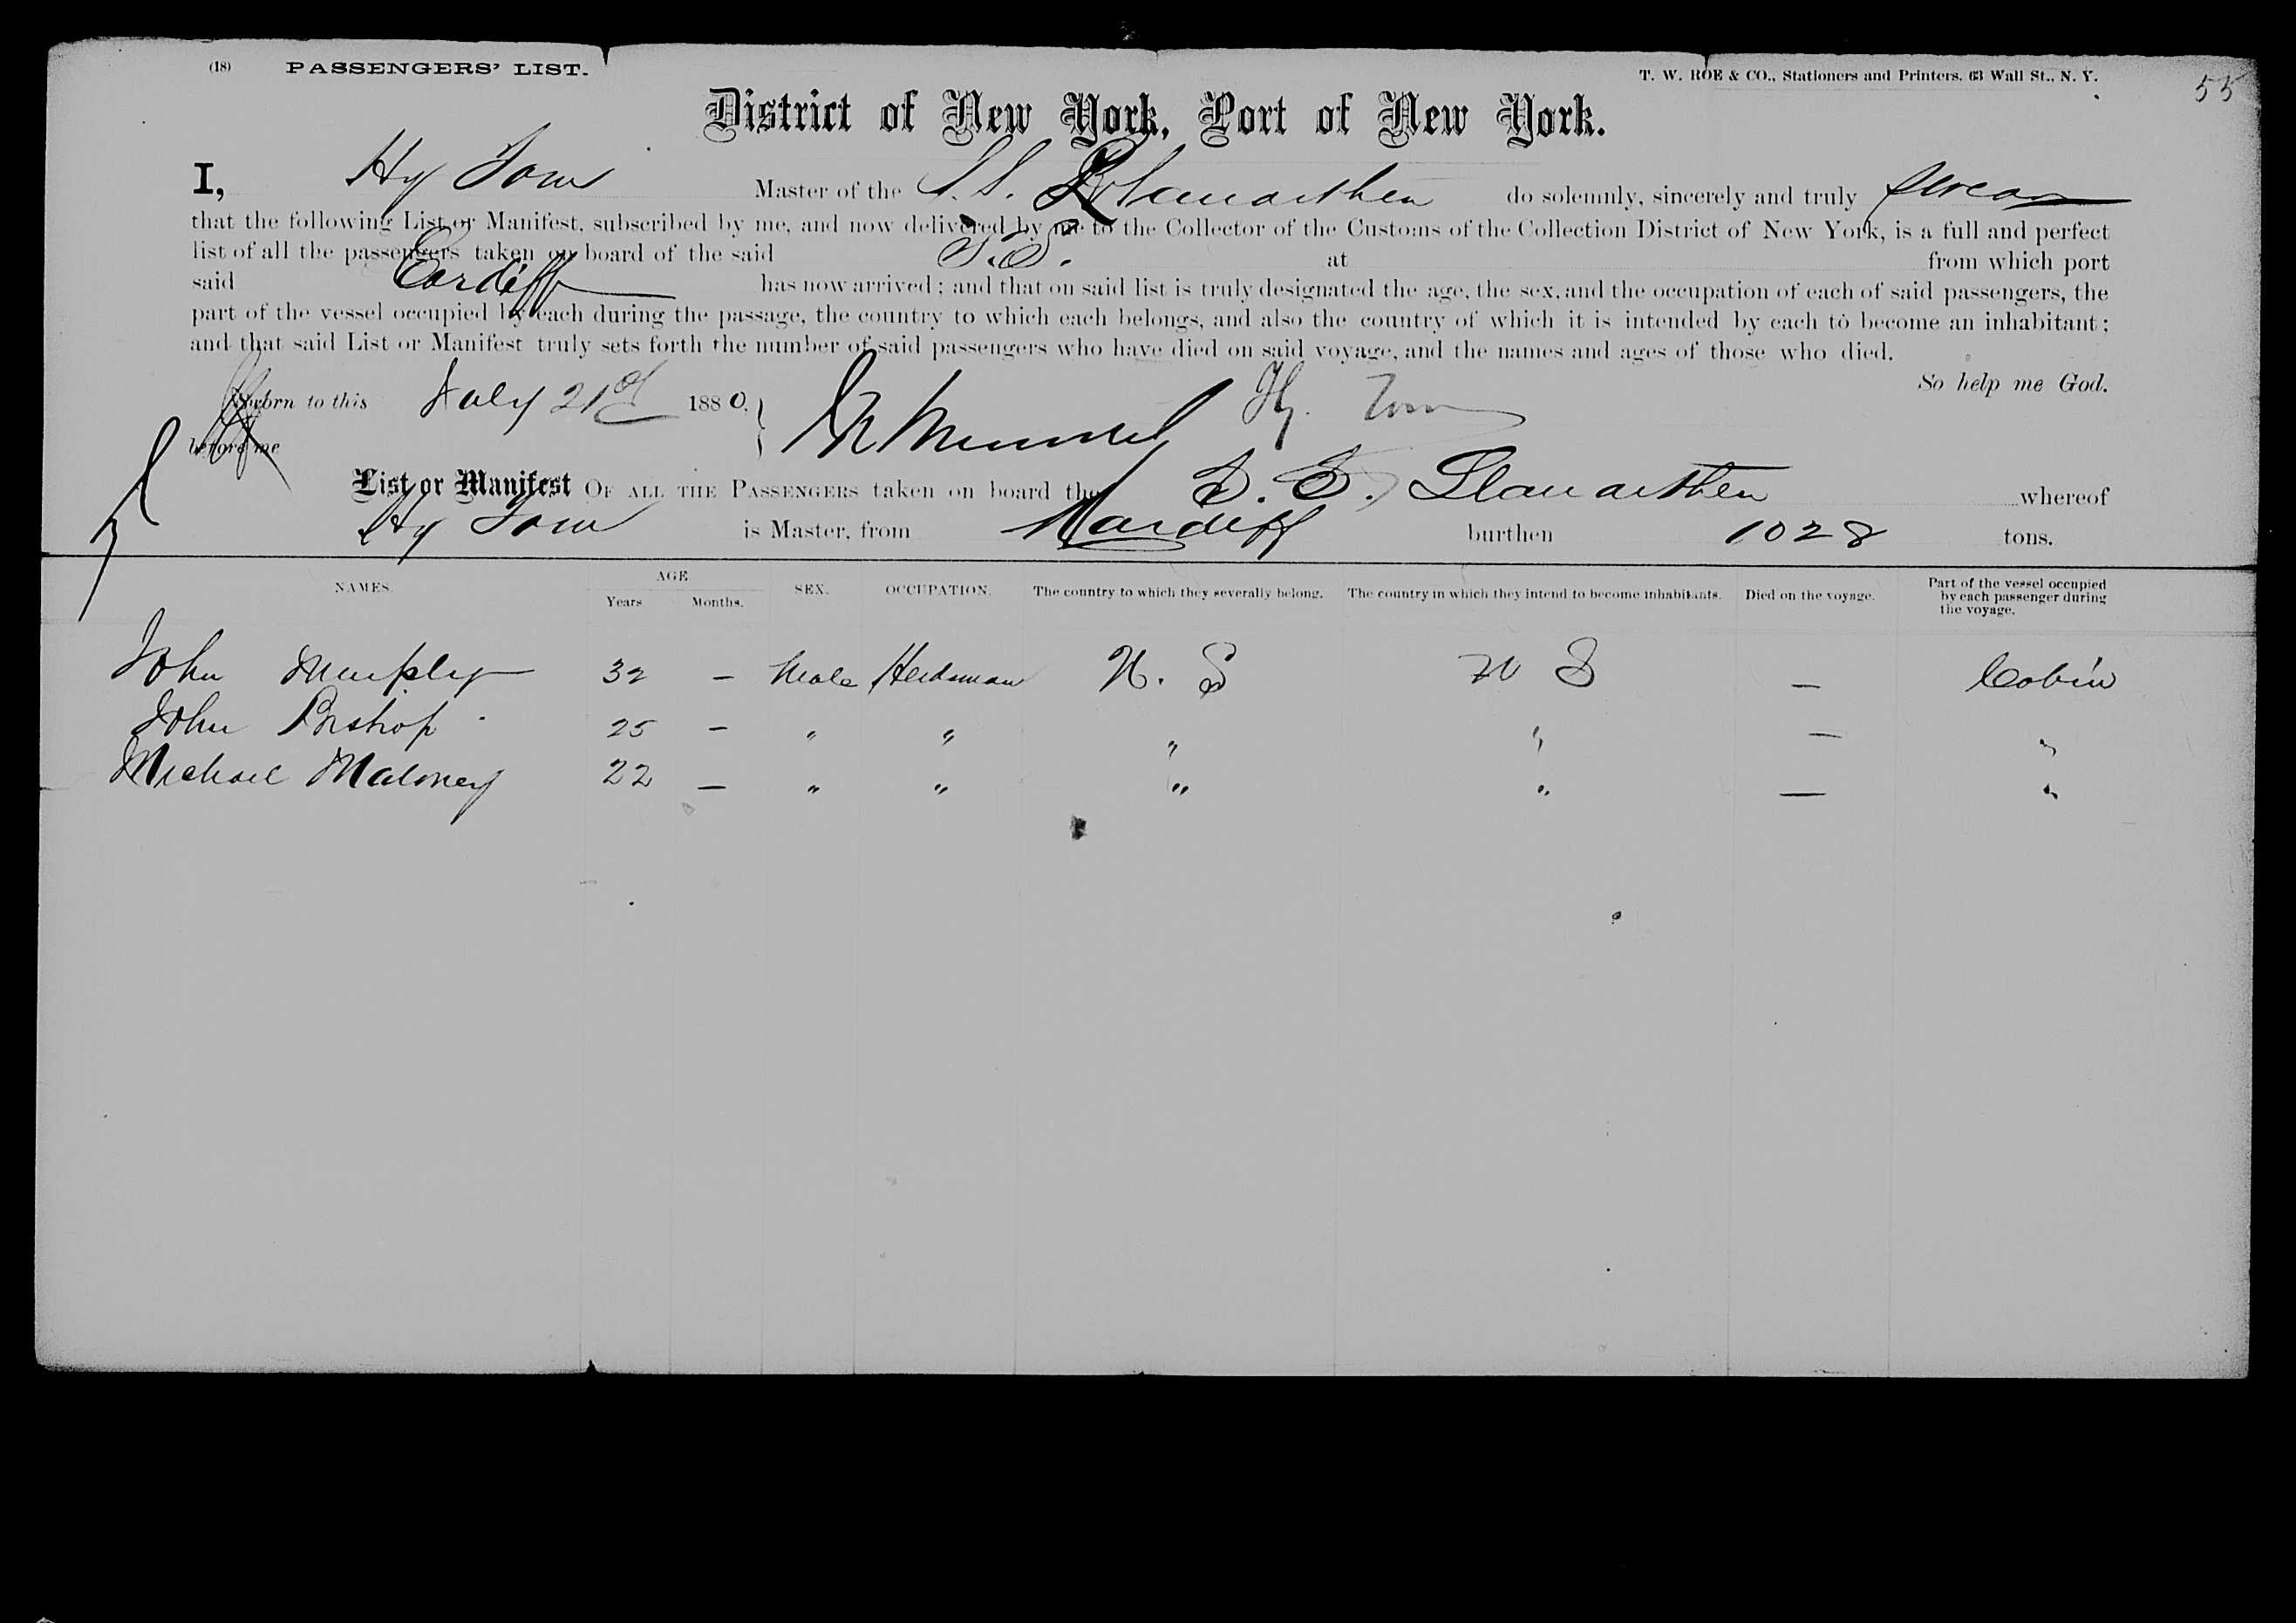 (18) PASSENGERS' LIST. T. W. ROE & CO., Stationers and Printers, 63 Wall St., N. Y. 55
District of New York, Port of New York.
I, Hy Master of the S.S. Llanarthen do solemnly, sincerely and truly swear
that the following List or Manifest, subscribed by me, and now delivered by me to the Collector of the Customs of the Collection District of New York, is a full and perfect
list of all the passengers taken on board of the said S.S. at from which port
said Cardiff has now arrived; and that on said list is truly designated the age, the sex, and the occupation of each of said passengers, the
part of the vessel occupied by each during the passage, the country to which each belongs, and also the country of which it is intended by each to become an inhabitant;
and that said List or Manifest truly sets forth the number of said passengers who have died on said voyage, and the names and ages of those who died.
So help me God.
Sworn to this July 21st 1880. Hy.
before me
List or Manifest OF ALL THE PASSENGERS taken on board the S.S. Llanarthen whereof
Hy is Master, from Cardiff burthen 1028 tons.
NAMES. AGE Years Months. SEX. OCCUPATION. The country to which they severally belong. The country in which they intend to become inhabitants. Died on the voyage. Part of the vessel occupied by each passenger during the voyage.
John Murphy 32 – Male Herdsman U. S U S – Cabin
John Bishop 25 – " " " " – "
Michael Maloney 22 – " " " " – "